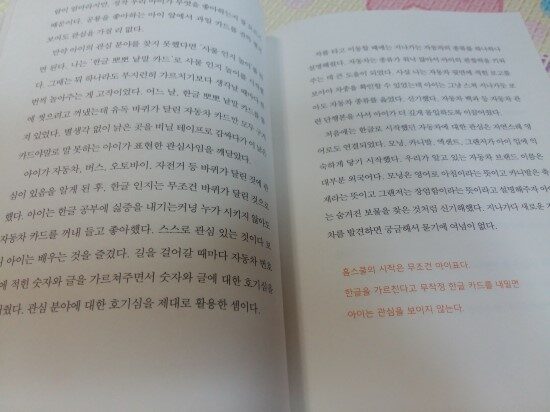 보여도 관심을 가질 리 없다.
만약 아이의 관심 분야를 찾지 못했다면 '사물 인지 놀이'를
면 된다. 나는 '한글 뽀뽀 낱말 카드'로 사물 인지 놀이를 시작했
다. 그때는 뭐 하나라도 부지런히 가르치기보다 생각날 때마다
번씩 놀아주는 게 고작이었다. 어느 날, 한글 뽀뽀 낱말 카드를
에 찢으려고 꺼냈는데 유독 바퀴가 달린 자동차 카드만 모두 구
져 있었다. 별생각 없이 낡은 곳을 비닐 테이프로 감싸다가 이 낡은
카드야말로 말 못하는 아이가 표현한 관심사임을 깨달았다.
아이가 자동차, 버스, 오토바이, 자전거 등 바퀴가 달린 것에 관
심이 있음을 알게 된 후, 한글 인지는 무조건 바퀴가 달린 것으로
했다. 아이는 한글 공부에 싫증을 내기는커녕 누가 시키지 않아도
자동차 카드를 꺼내 들고 좋아했다. 스스로 관심 있는 것이다 보
니 아이는 배우는 것을 즐겼다. 길을 걸어갈 때마다 자동차 번호
에 적힌 숫자와 글을 가르쳐주면서 숫자와 글에 대한 호기심을
워줬다. 관심 분야에 대한 호기심을 제대로 활용한 셈이다.
차를 타고 이동할 때에는 지나가는 자동차의 종류를 하나하나
설명해줬다. 자동차는 종류가 워낙 많아서 아이의 관찰력을 키워
주는 데 큰 도움이 되었다. 사실 나는 자동차 뒷면에 적힌 로고를
보아야 차종을 확인할 수 있었는데 아이는 그냥 스쳐 지나가듯 보
아도 자동차 종류를 읊었다. 신기했다. 자동차 백과 등 자동차 관
련 단행본을 사줘서 아이가 더 깊게 몰입하도록 이끌어줬다.
처음에는 한글로 시작했던 자동차에 대한 관심은 자연스레 영
어로도 연결되었다. 모닝, 카니발, 액센트, 그랜저가 아이 입에 익
숙하게 달기 시작했다. 우리가 알고 있는 자동차 브랜드 이름은
대부분 외국어다. 모닝은 영어로 아침이라는 뜻이고 카니발은 축
제라는 뜻이고 그랜저는 장엄함이라는 뜻이라고 설명해주자 아이
는 숨겨진 보물을 찾은 것처럼 신기해했다. 지나가다 새로운 자동
차를 발견하면 궁금해서 묻기에 여념이 없다.
홈스쿨의 시작은 무조건 아이표다.
한글을 가르친다고 무작정 한글 카드를 내밀면
아이는 관심를 보이지 않는다.